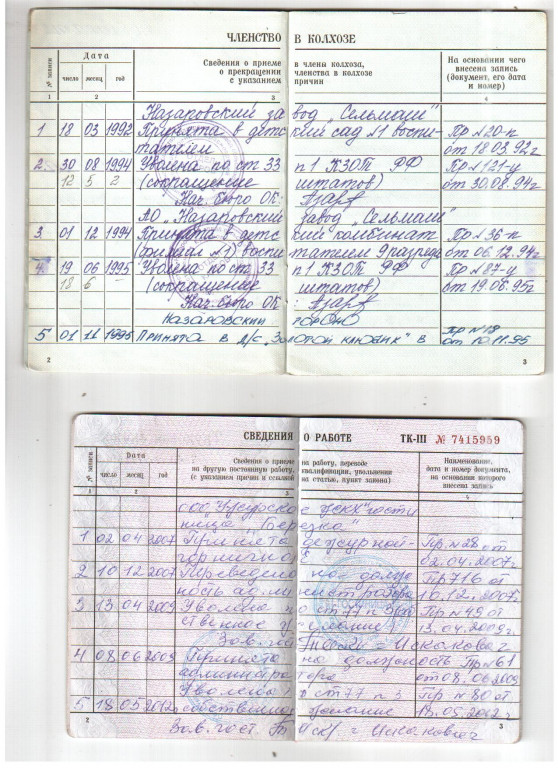 ЧЛЕНСТВО В КОЛХОЗЕ
№ записи
Дата
число месяц год
Сведения о приеме в члены колхоза,
о прекращении членства в колхозе
с указанием причин
На основании чего внесена запись (документ, его дата и номер)
1 2 3 4
Назаровский завод „Сельмаш"
1 18 03 1992 Принята в детский сад №1 воспи- Пр №20-п
тателем от 18.03.92г
2. 30 08 1994 Уволена по ст 33 п1 КЗОТ РФ Пр №121-у
12 5 2 (сокращение штатов) от 30.08.94г
Нач. бюро ОК:
АО „Назаровский завод „Сельмаш"
3. 01 12 1994 Принята в детский комбинат Пр №36-п
(филиал №1) воспитателем 9 разряда от 06.12.94г
4. 19 06 1995 Уволена по ст 33 п1 КЗОТ РФ Пр №87-у
18 6 – (сокращение штатов) от 19.06.95г
Нач. бюро ОК:
НАЗАРОВСКИЙ ГОРОНО
5 01 11 1995 ПРИНЯТА В Д/С „ЗОЛОТОЙ КЛЮЧИК" В Пр №18
от 10.11.95
2 3
СВЕДЕНИЯ О РАБОТЕ ТК-III № 7415959
№ записи
Дата
число месяц год
Сведения о приеме на работу, переводе
на другую постоянную работу, квалификации, увольнении
(с указанием причин и ссылкой на статью, пункт закона)
Наименование, дата и номер документа, на основании которого внесена запись
1 2 3 4
ООО „Ужурское ЖКХ" гости
ница „Березка"
1 02 04 2007 Принята дежурной- Пр №28 от
горничной 02.04.2007г
2 10 12 2007 Переведена на долж Пр 716 от
ность администратора 10.12.2007г
3 13 04 2009 Уволена по ст 77 п 3 Пр №49 от
ственное желание 13.04.2009г.
Зав. гост
4 08 06 2009 Принята на должность Пр №61
администратора от 08.06.2009
Уволена по ст 77 п 3 Пр №80 от
5 18 05 2012 собственное желание 18.05.2012г
Зав. гост
2 3